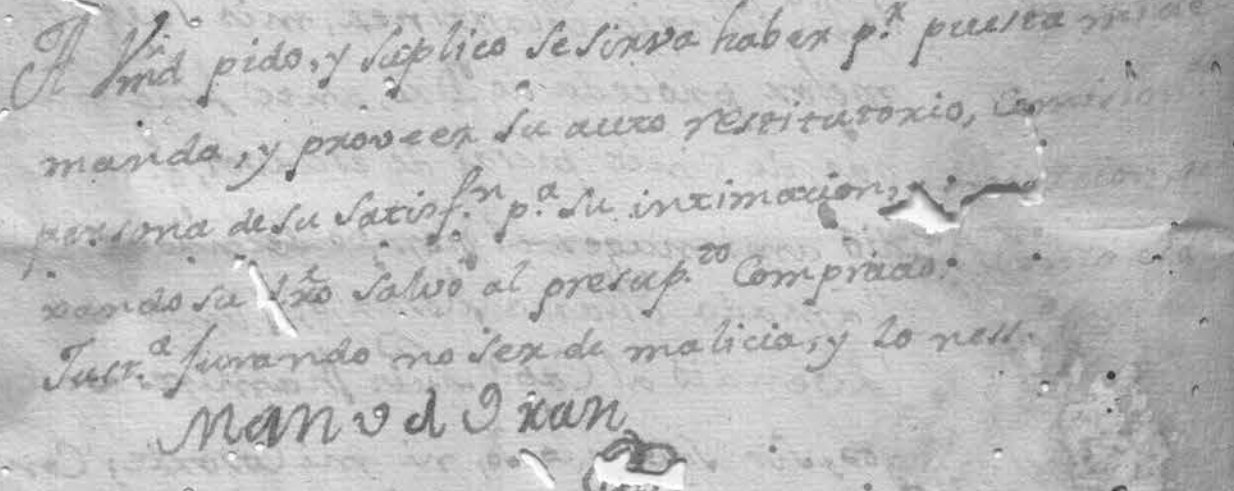 A Vmd pido, y suplico se sirva haber p.r puesta mi de
manda, y proveer su auto restitutorio, Comision
persona de su satisf.n p.a su intimacion,
rando su dro salvo al presup.to Comprado.
Just.a Jurando no ser de malicia, y lo ness.
Manuel Ixan